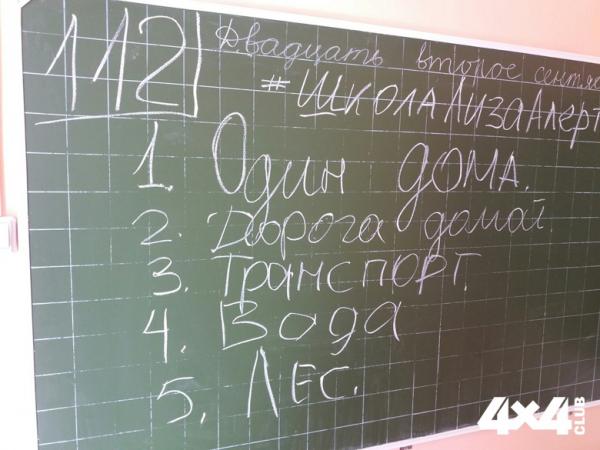 112
Двадцать второе сентяб
#ШколаЛизаАлерт
1. Один дома.
2. Дорога домой
3. Транспорт.
4. Вода
5. Лес.
4x4
CLUB